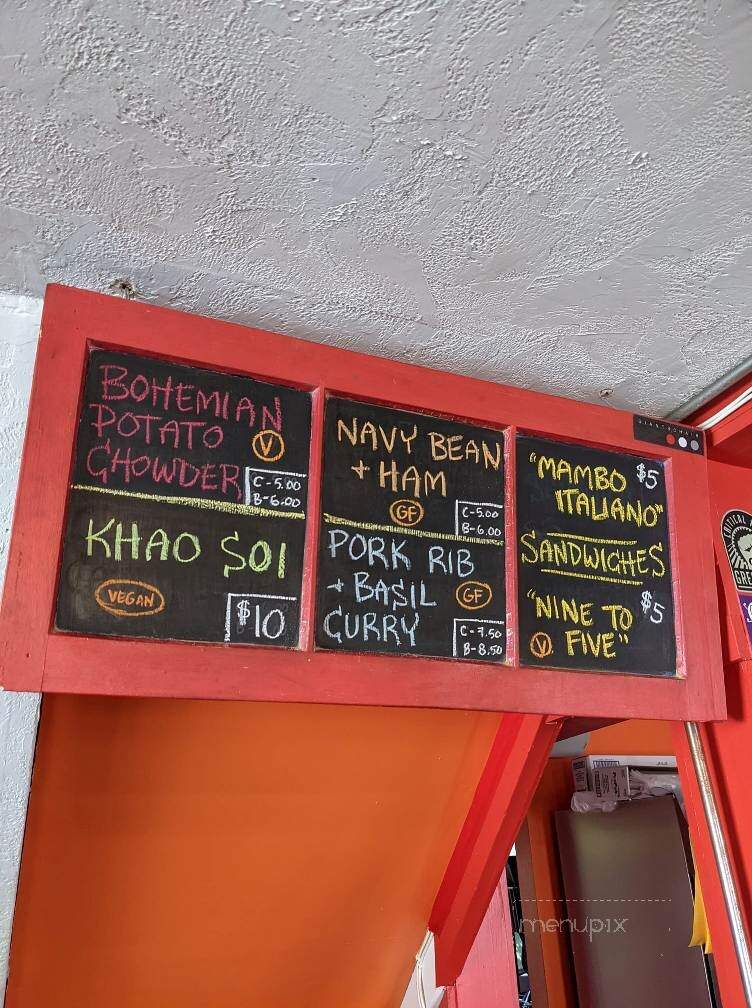 BOHEMIAN
POTATO
CHOWDER
V
C-5.00
B-6.00
KHAO SOI
VEGAN
$10
NAVY BEAN
+ HAM
GF
C-5.00
B-6.00
PORK RIB
+ BASIL
CURRY
GF
C-7.50
B-8.50
"MAMBO $5
ITALIANO"
SANDWICHES
"NINE TO $5
V FIVE"
menupix